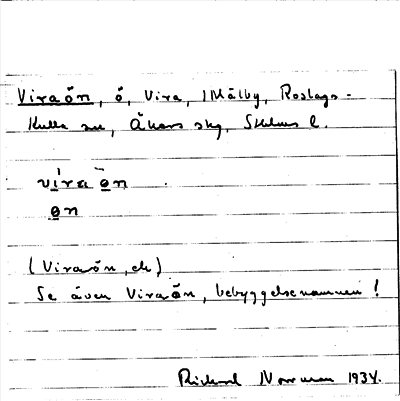 Viraön, ö, Vira, 1 Mälby, Roslags-
Kulla sn, Åkers skg, Sthlms l.
vira ön
ön
(Viraön, ek)
Se även Viraön, bebyggelsenamnen!
1934.